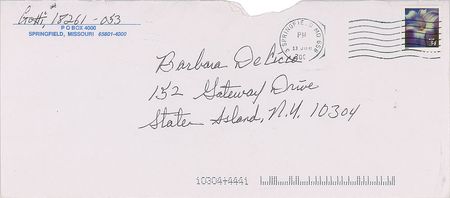 Gotti, #18261-053
P O BOX 4000
SPRINGFIELD, MISSOURI 65801-4000
SPRINGFIELD MO 658
PM
Barbara DeCicco
152 Gateway Drive
Staten Island, N.Y. 10304
10304+4441